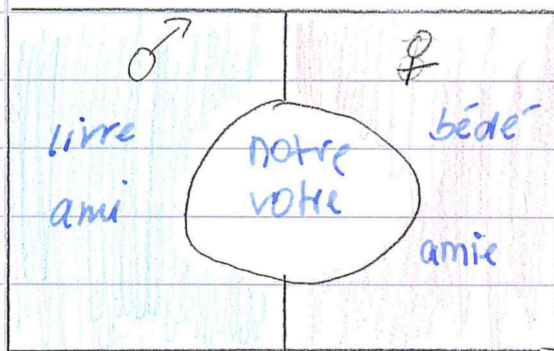 livre
ami
notre
votre
bédé
amie